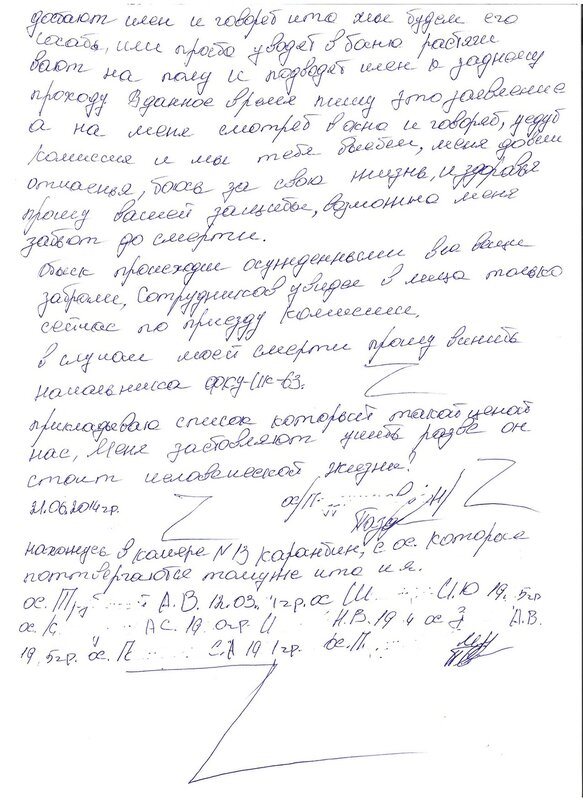 достают член и говорят что мы будем его
сосать, или просто уводят в баню растяги
вают на полу и подводят член к заднему
проходу В данное время пишу это заявление
а на меня смотрят в окна и говорят, уедут
комиссия и мы тебя выебем, меня довели
отчаенья, боюсь за свою жизнь, и здоровья
прошу вашей защиты, возможно меня
забьют до смерти.
Обыск происходил осужденными все вещи
забрали, Сотрудников увидел в лица только
сейчас по приезду комиссии,
в случаи моей смерти прошу винить
начальника ФКУ-ИК-63.
прикладываю список который такой ценой
нас, Меня заставляют учить разве он
стоит человеческой жизни?
21.06.2014гр.
нахожусь в камере N13 карантин, с ос. которые
поттвергаются томуже что и я.
ос. П А.В. 12.03. 1гр. ос Ш С.Ю 19 5гр
ос. К АС. 19 0гр. И Н.В. 19 4 ос З А.В.
19 5гр. ос. П С.А 19 1гр. ос. П.